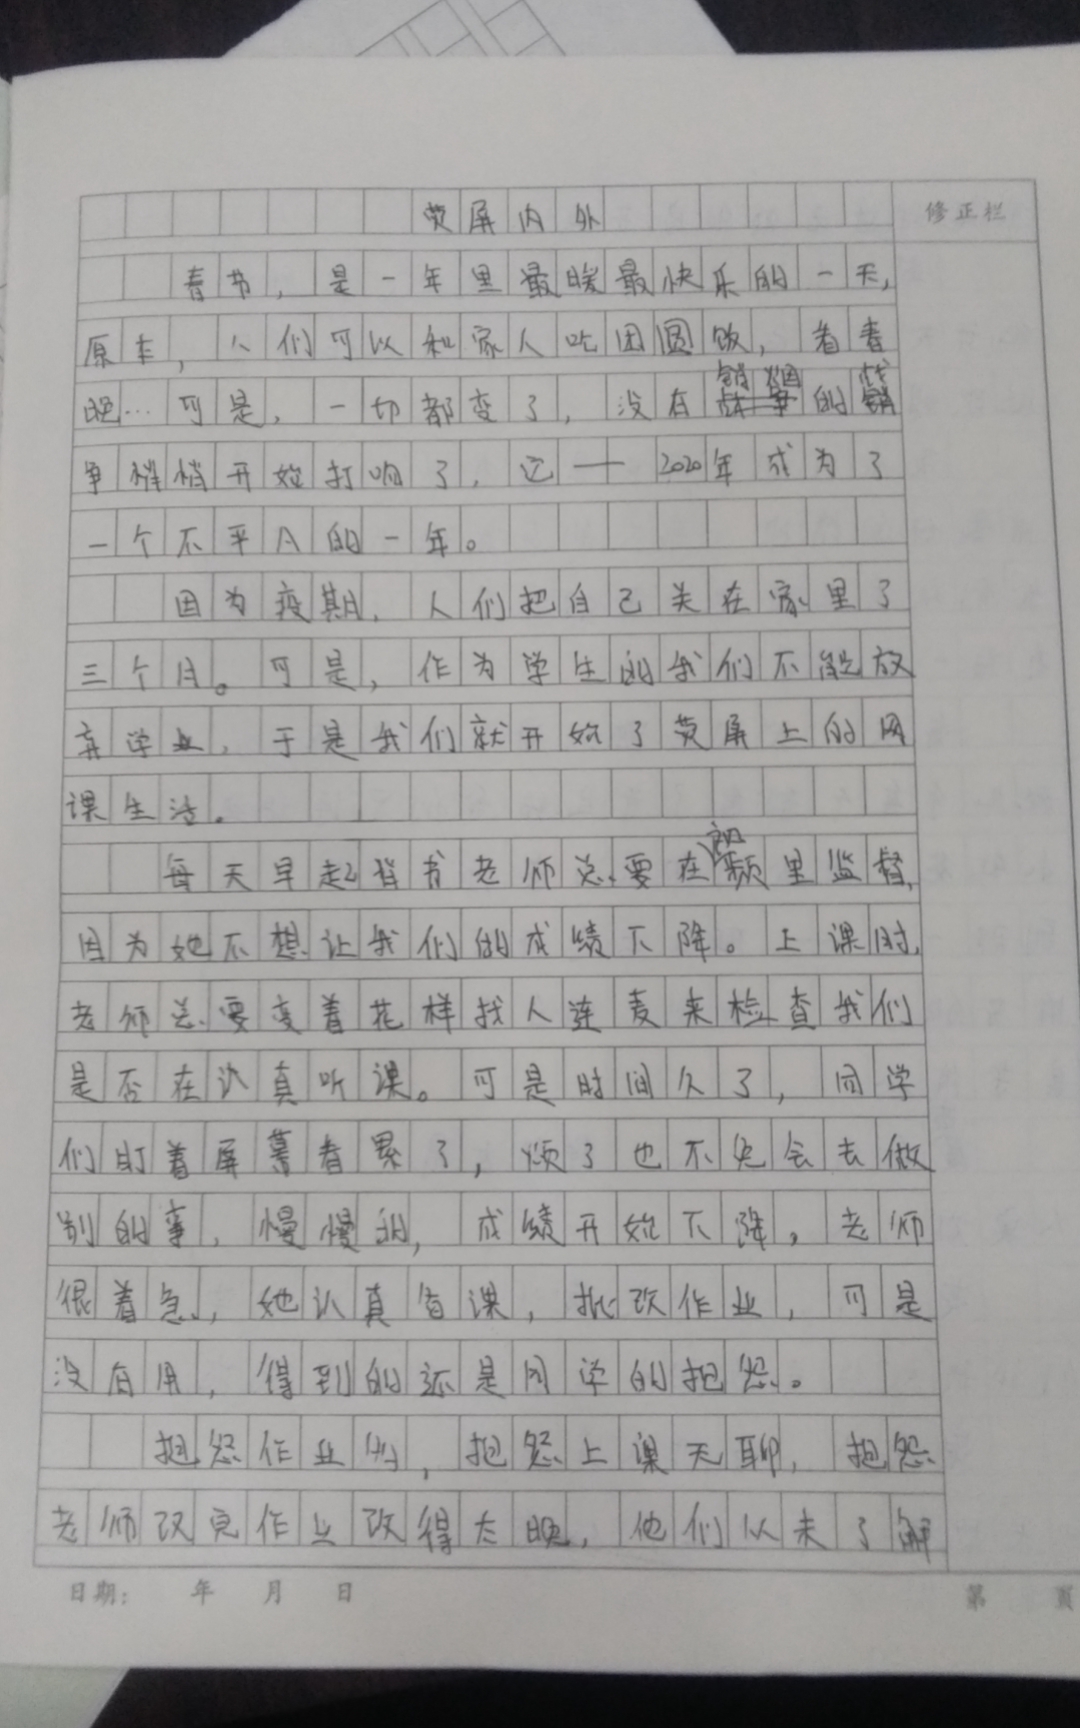 荧屏内外
修正栏
春节，是一年里最暖最快乐的一天，
原本，人们可以和家人吃团圆饭，看春
晚…可是，一切都变了，没有硝烟的战
争悄悄开始打响了，这——2020年成为了
一个不平凡的一年。
因为疫期，人们把自己关在家里了
三个月。可是，作为学生的我们不能放
弃学业，于是我们就开始了荧屏上的网
课生活。
每天早起背书老师总要在视频里监督，
因为她不想让我们的成绩下降。上课时，
老师总要变着花样找人连麦来检查我们
是否在认真听课。可是时间久了，同学
们盯着屏幕看累了，烦了也不免会去做
别的事，慢慢的，成绩开始下降，老师
很着急，她认真备课，批改作业，可是
没有用，得到的还是同学的抱怨。
抱怨作业多，抱怨上课无聊，抱怨
老师改完作业改得太晚，他们从未了解
日期： 年 月 日
第 页